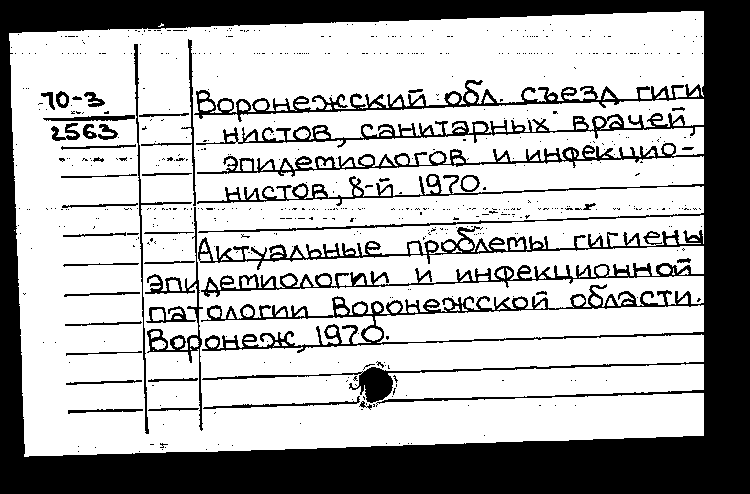 70-3
2563
Воронежский обл. съезд гиги
нистов, санитарных врачей,
эпидемиологов и инфекцио-
нистов, 8-й. 1970.
Актуальные проблемы гигиены
эпидемиологии и инфекционной
патологии Воронежской области.
Воронеж, 1970.